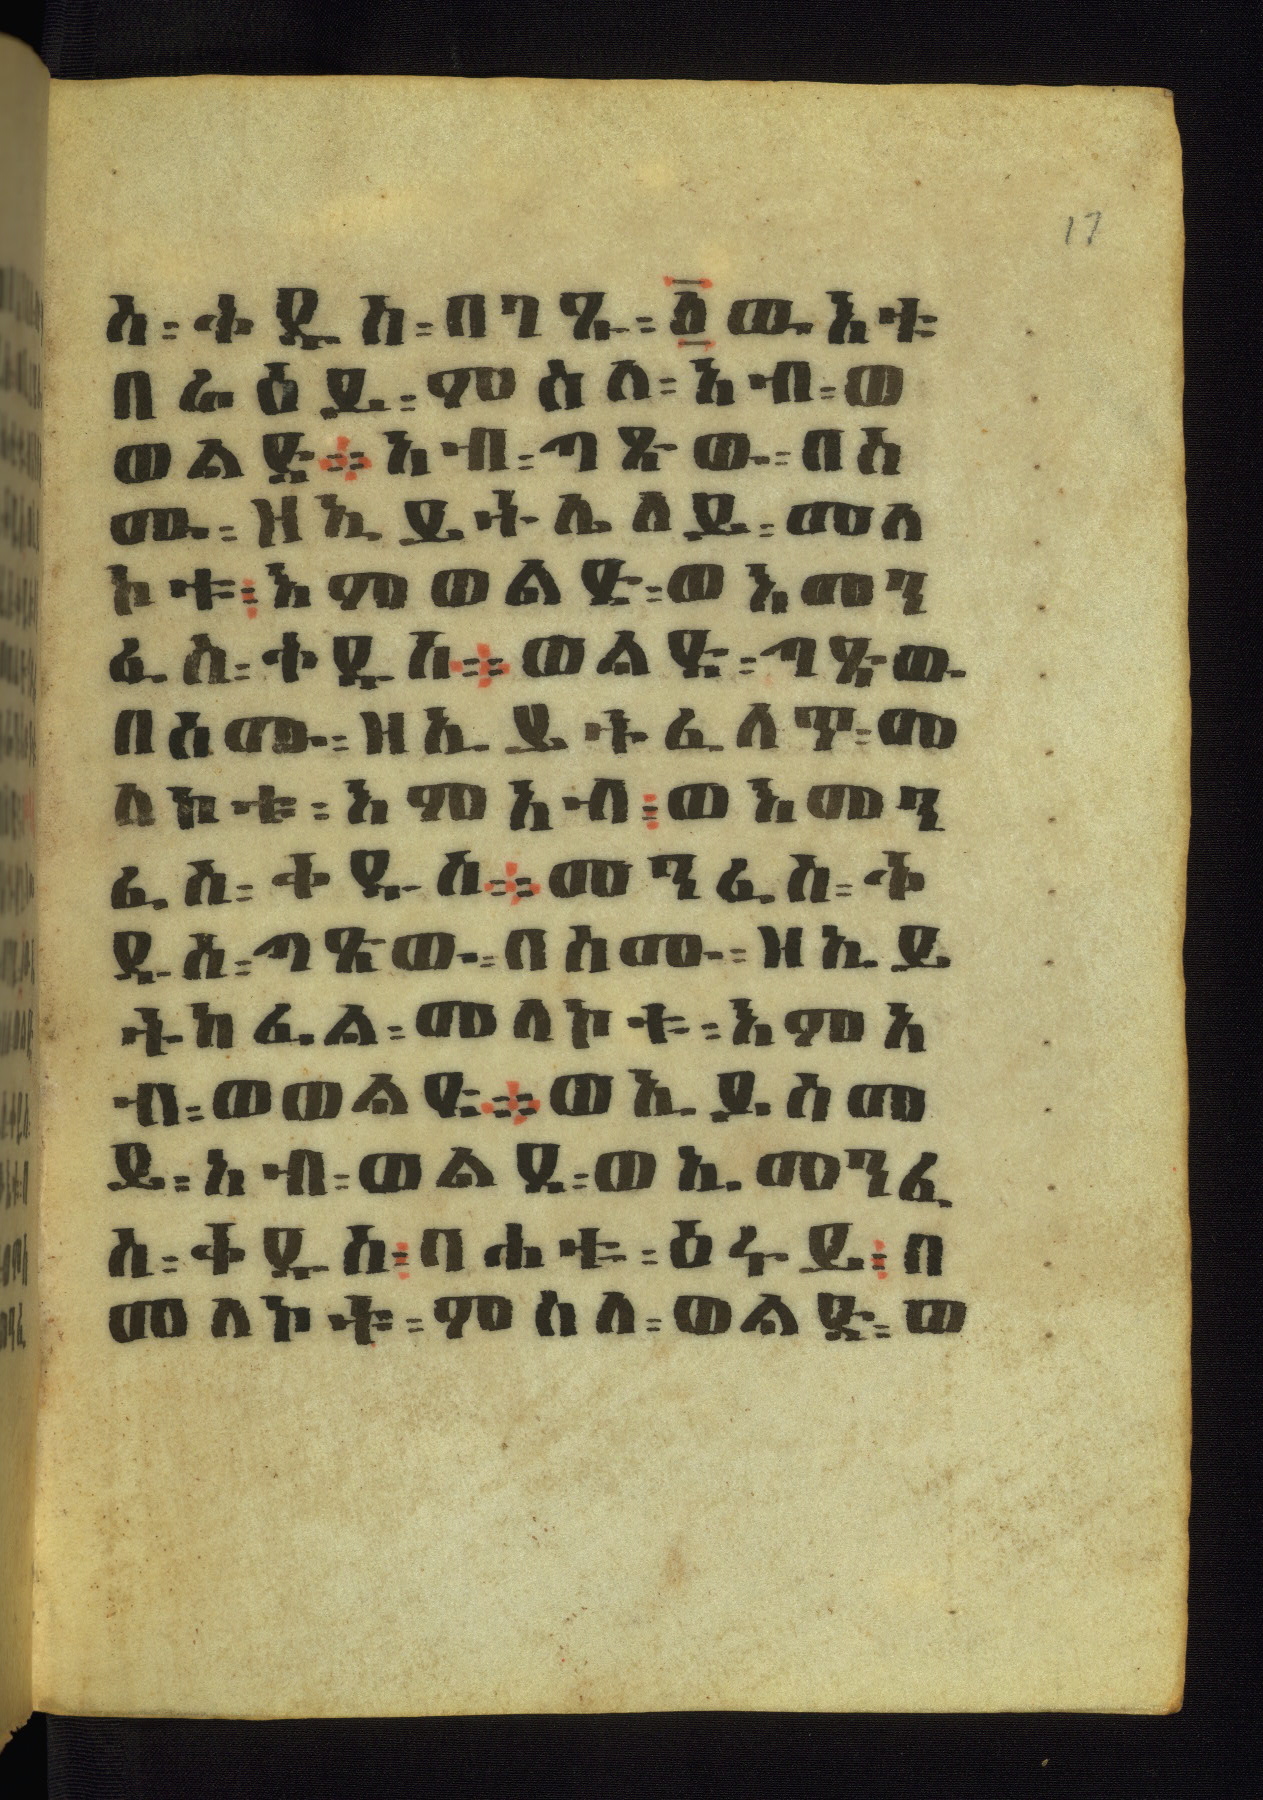 17
ስ፡ ቅዱስ፡ በገጹ፡ ፩ ውእቱ፡
በሬዕይ፡ ምስለ፡ አብ፡ ወ
ወልድ። አብ፡ ጣጽው፡ በስ
ሙ፡ ዘኢይትሌለይ፡ መለ
ኮቱ፡ እምወልድ፡ ወእመን
ፈስ፡ ቅዱስ። ወልድ፡ ጣጽው፡
በስሙ፡ ዘኢይትፈለጥ፡ መ
ለኮቱ፡ እምአብ፡ ወእመን
ፈስ፡ ቅዱስ። መንፈስ፡ ቅ
ዱስ፡ ጣጽው፡ በስሙ፡ ዘኢይ
ትከፈል፡ መለኮቱ፡ እምአ
ብ፡ ወወልድ። ወኢይሰመ
ይ፡ አብ፡ ወልደ፡ ወኢመንፈ
ስ፡ ቅዱስ፡ በሐቱ፡ ዕሩይ፡ በ
መለኮቱ፡ ምስለ፡ ወልድ፡ ወ